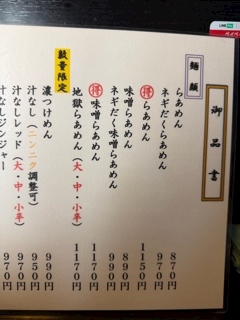 御品書
麺類
らぁめん 870円
ネギだくらぁめん 970円
得らぁめん 1150円
味噌らぁめん 890円
ネギだく味噌らぁめん 990円
得味噌らぁめん 1170円
地獄らぁめん(大・中・小辛) 1170円
数量限定
濃つけめん 990円
汁なし(ニンニク調整可) 950円
汁なしレッド(大・中・小辛) 970円
汁なしジンジャー 970円